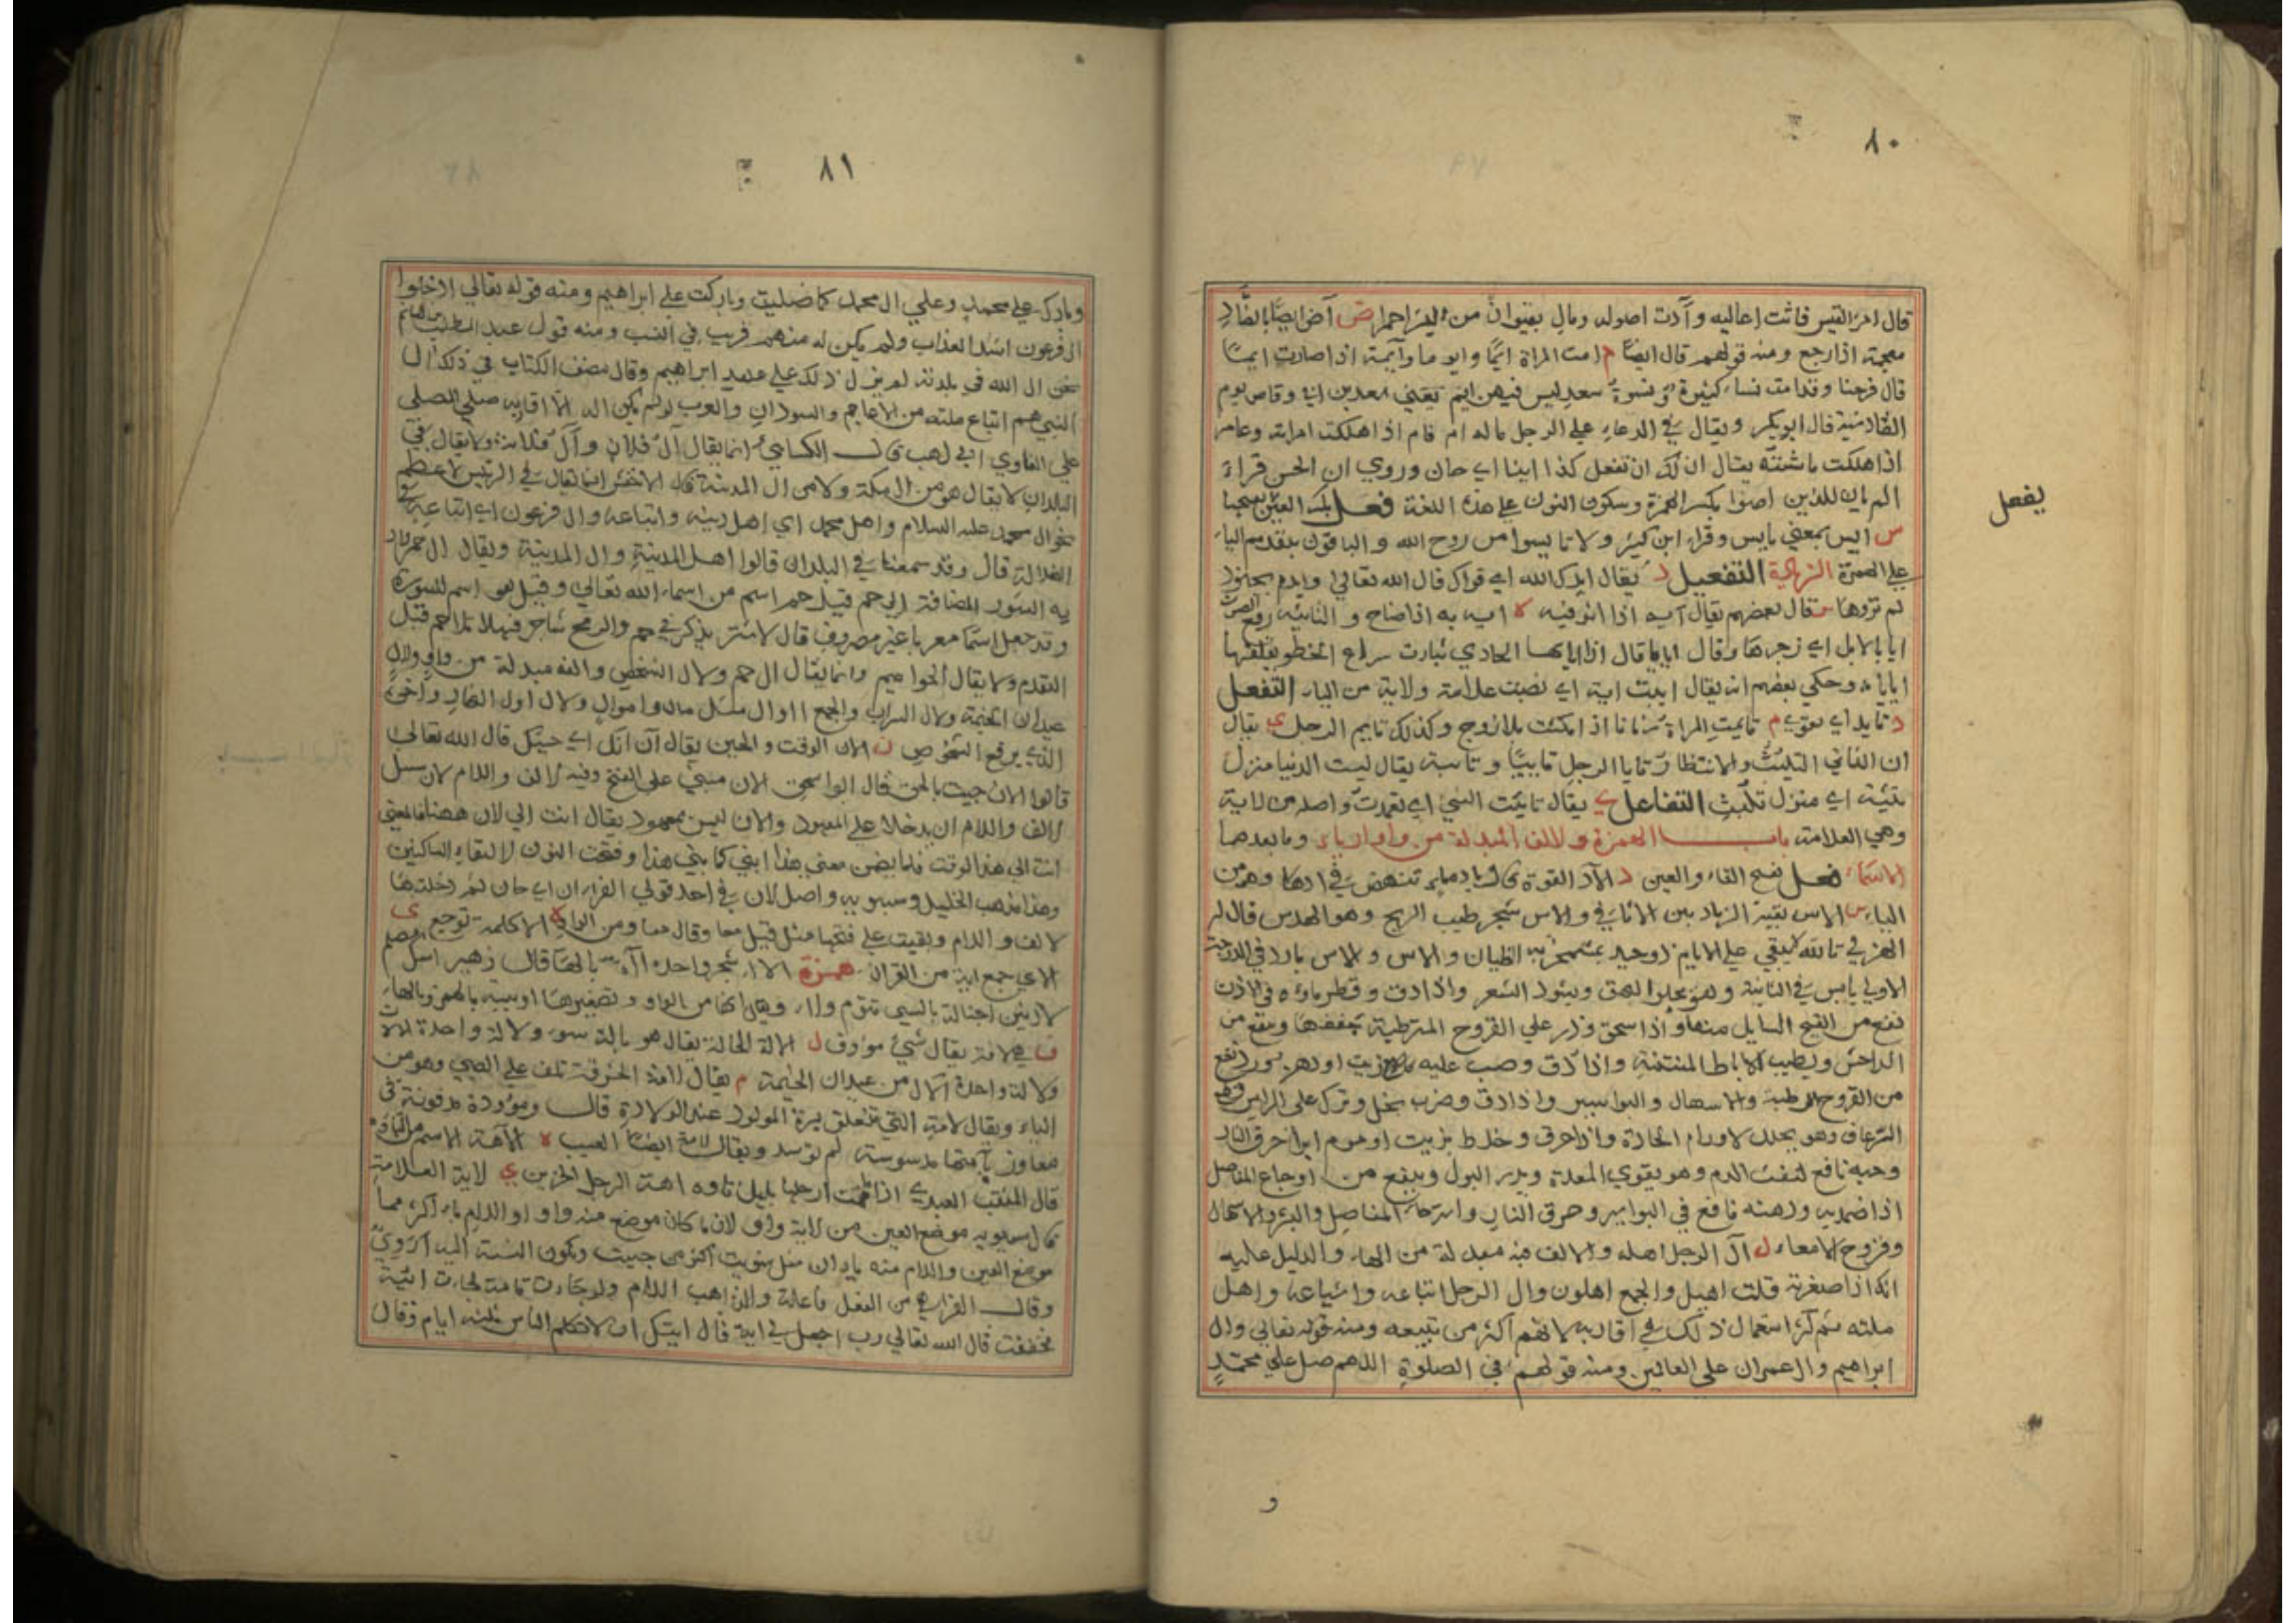 ٨٠
قال امرؤ القيس فاثت اعاليه وآدت اصوله ومال بقنوان من البسر احمرا ض آض ايضًا بالضاد
معجمة اذا رجع ومنه قولهم قال ايضًا م امت المراة ايمًا وايوما وآيمة اذا صارت ايمًا
قال فرحنا وقد امت نساء كثيرة ونسوة سعد ليس فيهن ايم يعني سعد بن ابي وقاص يوم
القادسية قال ابو بكر ويقال في الدعاء على الرجل ماله ام وعام اذا هلكت امراته وعامر
اذا هلكت ماشيته يقال ان لك ان تفعل كذا اينا اي حان وروي ان الحسن قراءَ
الم يان للذين امنوا بكسر الهمزة وسكون النون على هذه اللغة فعل بكسر العين
يفعل
س ايس بمعنى يايس وقراء ابن كثير ولا تايسوا من روح الله والباقون بتقديم الياء
على الهمزة الزيادة التفعيل د يقال ايدك الله اي قواك قال الله تعالى وايدهم بجنود
لم تروها قال بعضهم يقال ايه به اذا صاح
ايا بالابل اي زجرها وقال اذا ايا بها الحادي سراع الخطو
وحكي بعضهم انه يقال اييت اية اي نصبت علامة ولاية من الياء التفعل
د تايد اي تقوى م تايمت المراة زمانا اذا مكثت بلا زوج وكذلك تايم الرجل ي يقال
التلبث والانتظار تايا الرجل تاييًا وتايية يقال ليست الدنيا منزل
تئية اي منزل تلبث التفاعل ي يقال تاييت الشي اي تعمدت واصله من لاية
وهي العلامة باب الهمزة ولالف المبدلة من واو او ياء وما بعدهما
الاسماء فعل بفتح الفاء والعين د الآد القوة
الباء س الاس بقية الرماد بين الاثافي والاس شجر طيب الريح وهو الهدس قال
الهذلي تالله يبقي على الايام ذو حيد بمشمخر به الظيان والاس والاس بارد في الدرجة
الاولى يابس في الثانية وهو يجلو البهق ويسود الشعر واذا دق وقطر ماؤه في الاذن
نفع من القيح السايل منها واذا سحق وذر على القروح الرطبة جففها ونفع من
الداحس ويطيب الاباط المنتنة واذا دق وصب عليه زيت او دهن ورد نفع
من القروح الرطبة والاسهال والبواسير واذا دق وضرب بخل وترك على الراس قطع
الرعاف وهو يحلل لاورام الحادة واذا حرق وخلط بزيت او موم ابرا حرق النار
وحبه نافع لنفث الدم وهو يقوي المعدة ويدر البول وينفع من اوجاع المفاصل
اذا ضمد به ودهنه نافع في البواسير وحرق النار واسترخاء المفاصل
وقروح الامعاء ل آل الرجل اهله والالف فيه مبدلة من الهاء والدليل عليه
انك اذا صغرته قلت اهيل والجمع اهلون وال الرجل اتباعه واشياعه واهل
ملته ثم كثر استعمال ذلك في اقاربه لانهم اكثر من تبيعه ومنه قوله تعالى وال
ابراهيم وال عمران على العالمين ومنه قولهم في الصلوة اللهم صل على محمدٍ
و
٨١
وبارك على محمد وعلى ال محمد كما صليت وباركت على ابراهيم ومنه قوله تعالى ادخلوا
ال فرعون اشد العذاب ولم يكن له منهم قريب في النسب ومنه قول عبد المطلب بن هاشم
نحن ال الله في بلدته لم يزل ذلك على عهد ابراهيم وقال مصنف الكتاب في ذلك ال
النبي هم اتباع ملته من الاعاجم والسودان والعرب لو لم يكن اله الا اقاربه صلي المصلي
على الغاوي ابي لهب قال الكسايي انما يقال آل فلان وآل فلانة ولا يقال في
البلدان لا يقال هو من ال مكة ولا من ال المدينة قال الاخفش انما يقال في الرئيس الاعظم
نحو ال محمد عليه السلام واهل محمد اي اهل دينه واتباعه وال فرعون اي اتباعه في
الضلالة قال وقد سمعنا في البلدان قالوا اهل المدينة وال المدينة ويقال ال حم يراد
به السور المضافة الى حم قيل حم اسم من اسماء الله تعالى وقيل هو اسم للسورة
وقد جعل اسما معربا غير مصروف قال الاشتر يذكرني حم والرمح شاجر فهلا تلا حم قبل
التقدم ولا يقال الحواميم وانما يقال ال حم ولال الشخص والفه مبدلة من واو ولال
عيدان الخيمة ولال السراب والجمع ااوال مثل مال واموال ولال اول النهار واخره
الذي يرفع الشخوص ن الان الوقت والحين يقال آن انك اي حينك قال الله تعالى
قالوا الان جيت بالحق قال ابو اسحق الان مبني على الفتح وفيه الالف واللام لان سبيل
الالف واللام ان يدخلا على المعهود والان ليس بمعهود يقال انت الى لان ههنا فالمعني
انت الى هذا الوقت فلما تضمن معنى هذا ابني كما بني هذا وفتحت النون لالتقاء الساكنين
وهذا مذهب الخليل وسيبويه واصل لان في احد قولي الفراء ان اي حان ثم دخلتها
لالف واللام وبقيت على فتحها مثل قيل
الاي جمع اية من القران همزة الاء شجر واحده آءة بالهاء قال زهير اسك
وهي انها من الواو وتصغيرها اوبية بالهمز والهاء
ف هي لافة يقال شئ مؤوف ل الالة الحالة يقال هو بالة سوء ولالة واحدة الالات
ولالة واحدة الال من عيدان الخيمة م يقال لامة الخرقة تلف على الصبي وهو من
الباء ويقال لامة التي تتعلق بسرة المولود عند الولادة قال وموؤدة مدفونة في
معاوز بآمتها مدسوسة لم توسد ويقال لامة ايضًا العيب ه الآهة الاسم من التاوه
قال المثقب العبدي اذا ما قمت ارحلها بليل تاوه اهة الرجل الحزين ي لاية العلامة
قال سيبويه موضع العين من لاية واو لان ما كان موضع منه واو او اللام ياء اكثر مما
موضع العين واللام منه يا ان مثل شويت اكثر من حييت وتكون النسبة اليه اَوَوِيّ
وقال الفراء هي من الفعل فاعلة وانما ذهب اللام ولو جاءت تامة لجاءت ائيية
فخففت قال الله تعالى رب اجعل لي اية قال ايتك ان لا تكلم الناس ثلثه ايام وقال